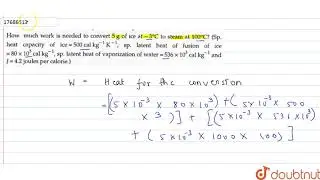 17656112
How much work is needed to convert 5 g of ice at – 3°C to steam at 100°C? (Sp.
heat capacity of ice = 500 cal kg⁻¹ K⁻¹, sp. latent heat of fusion of ice
= 80 × 10³ cal kg⁻¹, sp. latent heat of vaporization of water = 536 × 10³ cal kg⁻¹ and
J = 4.2 joules per calorie.)
W = Heat for the conversion
= [(5 × 10⁻³ × 80 × 10³) + (5 × 10⁻³ × 500
× 3)] + [(5 × 10⁻³ × 536 × 10³)
+ (5 × 10⁻³ × 1000 × 100)]
doubtnut